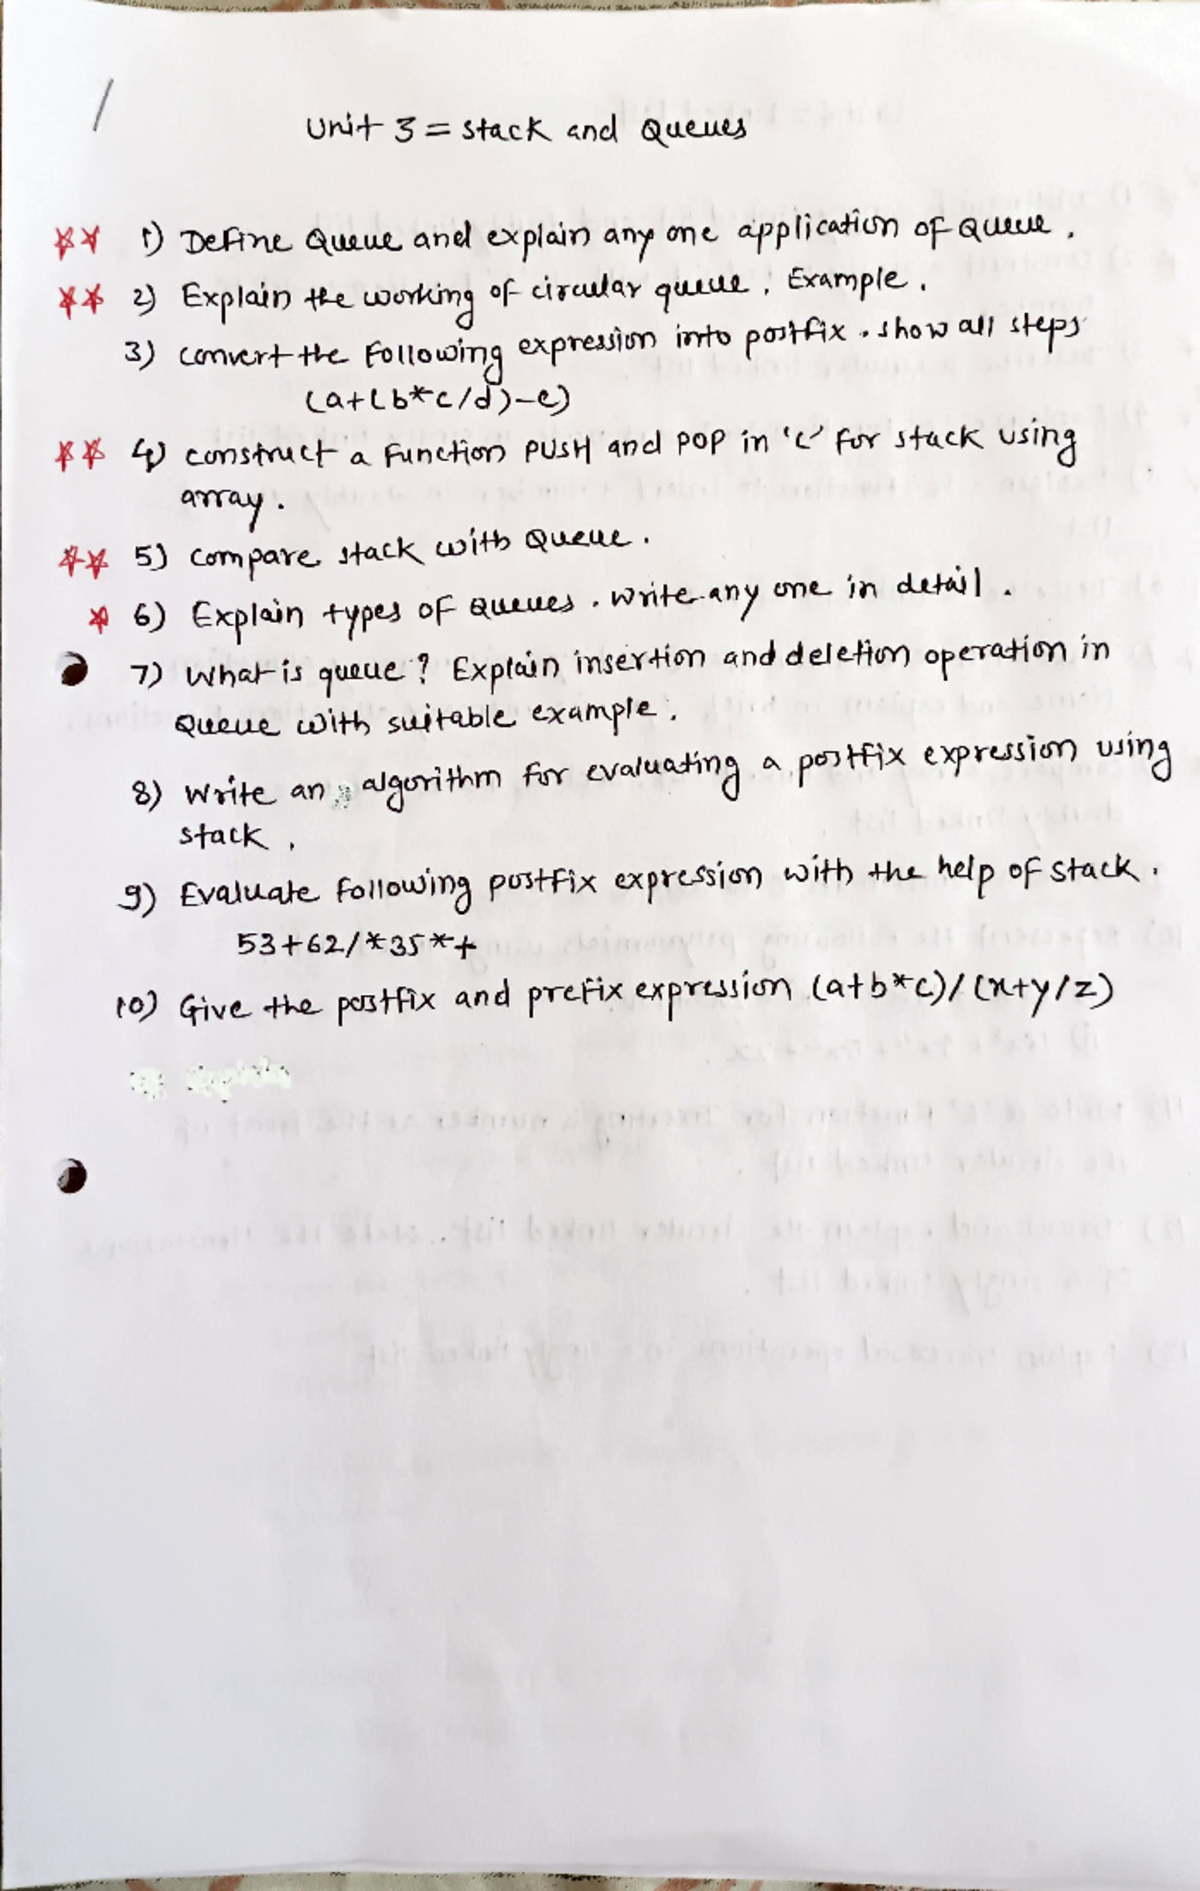 Unit 3 = stack and Queues
1) Define Queue and explain any one application of Queue.
2) Explain the working of circular queue. Example.
3) convert the following expression into postfix. show all steps
(a+(b*c/d)-e)
4) construct a function PUSH and POP in 'C' for stack using
array.
5) compare stack with Queue.
6) Explain types of Queues. write any one in detail.
7) What is queue? Explain insertion and deletion operation in
Queue with suitable example.
8) Write an algorithm for evaluating a postfix expression using
stack.
9) Evaluate following postfix expression with the help of stack.
53+62/*35*+
10) Give the postfix and prefix expression (a+b*c)/(x+y/z)